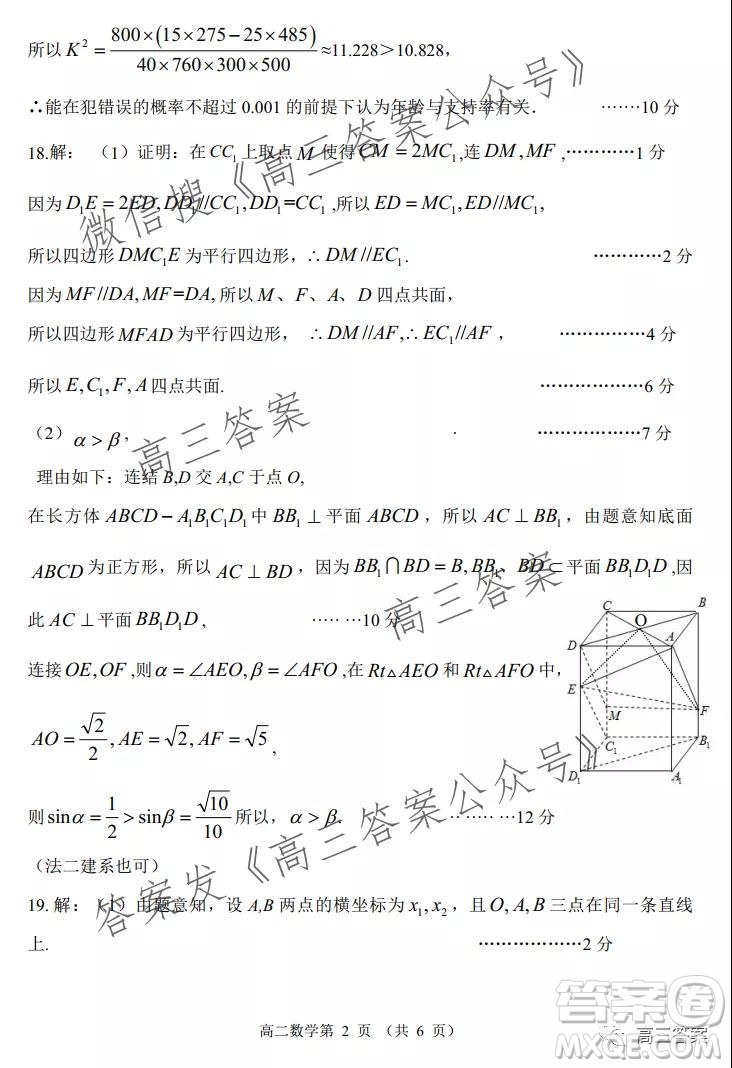 所以 K² = 800×(15×275−25×485) / 40×760×300×500 ≈11.228＞10.828，
∴能在犯错误的概率不超过 0.001 的前提下认为年龄与支持率有关． ·······10 分
18.解： （1）证明：在 CC₁ 上取点 M 使得 CM = 2MC₁ ,连 DM , MF ,…………1 分
因为 D₁E = 2ED, DD₁//CC₁, DD₁=CC₁ ,所以 ED = MC₁, ED//MC₁,
所以四边形 DMC₁E 为平行四边形，∴ DM //EC₁ . …………2 分
因为 MF//DA, MF=DA, 所以 M、F、A、D 四点共面，
所以四边形 MFAD 为平行四边形， ∴ DM //AF ,∴ EC₁//AF ， ……………4 分
所以 E, C₁, F, A 四点共面. ………………6 分
（2） α > β , ………………7 分
理由如下：连结 B,D 交 A,C 于点 O,
在长方体 ABCD − A₁B₁C₁D₁ 中 BB₁ ⊥ 平面 ABCD ，所以 AC ⊥ BB₁ ，由题意知底面
ABCD 为正方形，所以 AC ⊥ BD ，因为 BB₁ ⋂ BD = B, BB₁、BD ⊂ 平面 BB₁D₁D ,因
此 AC ⊥ 平面 BB₁D₁D , ····· ···10 分
连接 OE, OF ,则 α = ∠AEO, β = ∠AFO ,在 Rt△AEO 和 Rt△AFO 中，
AO = √2/2, AE = √2, AF = √5 ,
则 sinα = 1/2 > sinβ = √10/10 所以，α > β． ········ ···12 分
（法二建系也可）
C
B
O
A
D
E
M
F
C₁
B₁
D₁
A₁
19. 解：（1）由题意知，设 A,B 两点的横坐标为 x₁, x₂ ，且 O, A, B 三点在同一条直线
上. ………………2 分
高二数学第 2 页 （共 6 页）
微信搜《高三答案公众号》
高三答案
高三答案
答案发《高三答案公众号》
答案圈
高三答案
MXQE.COM